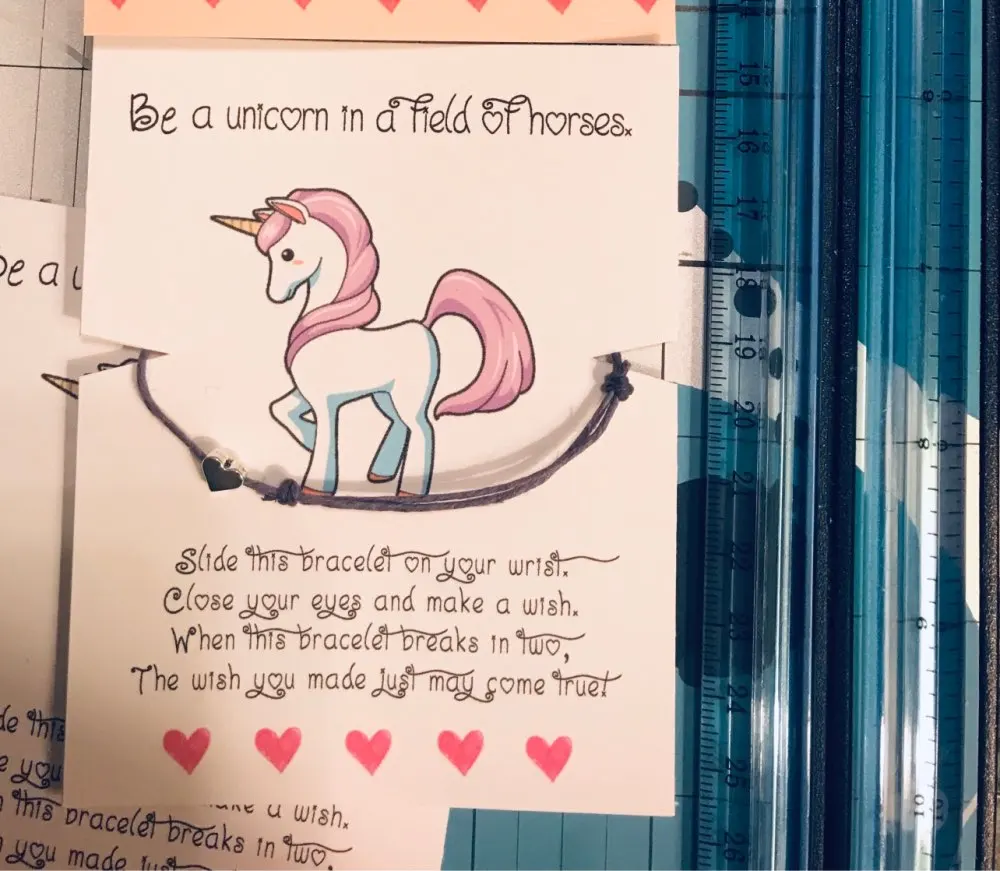 Be a unicorn in a field of horses.
Slide this bracelet on your wrist.
Close your eyes and make a wish.
When this bracelet breaks in two,
The wish you made just may come true!
Be a
this
you
this bracelet breaks in two,
a wish.
you made just
15
16
17
18
19
20
21
22
23
24
25
26
7
8
9
10